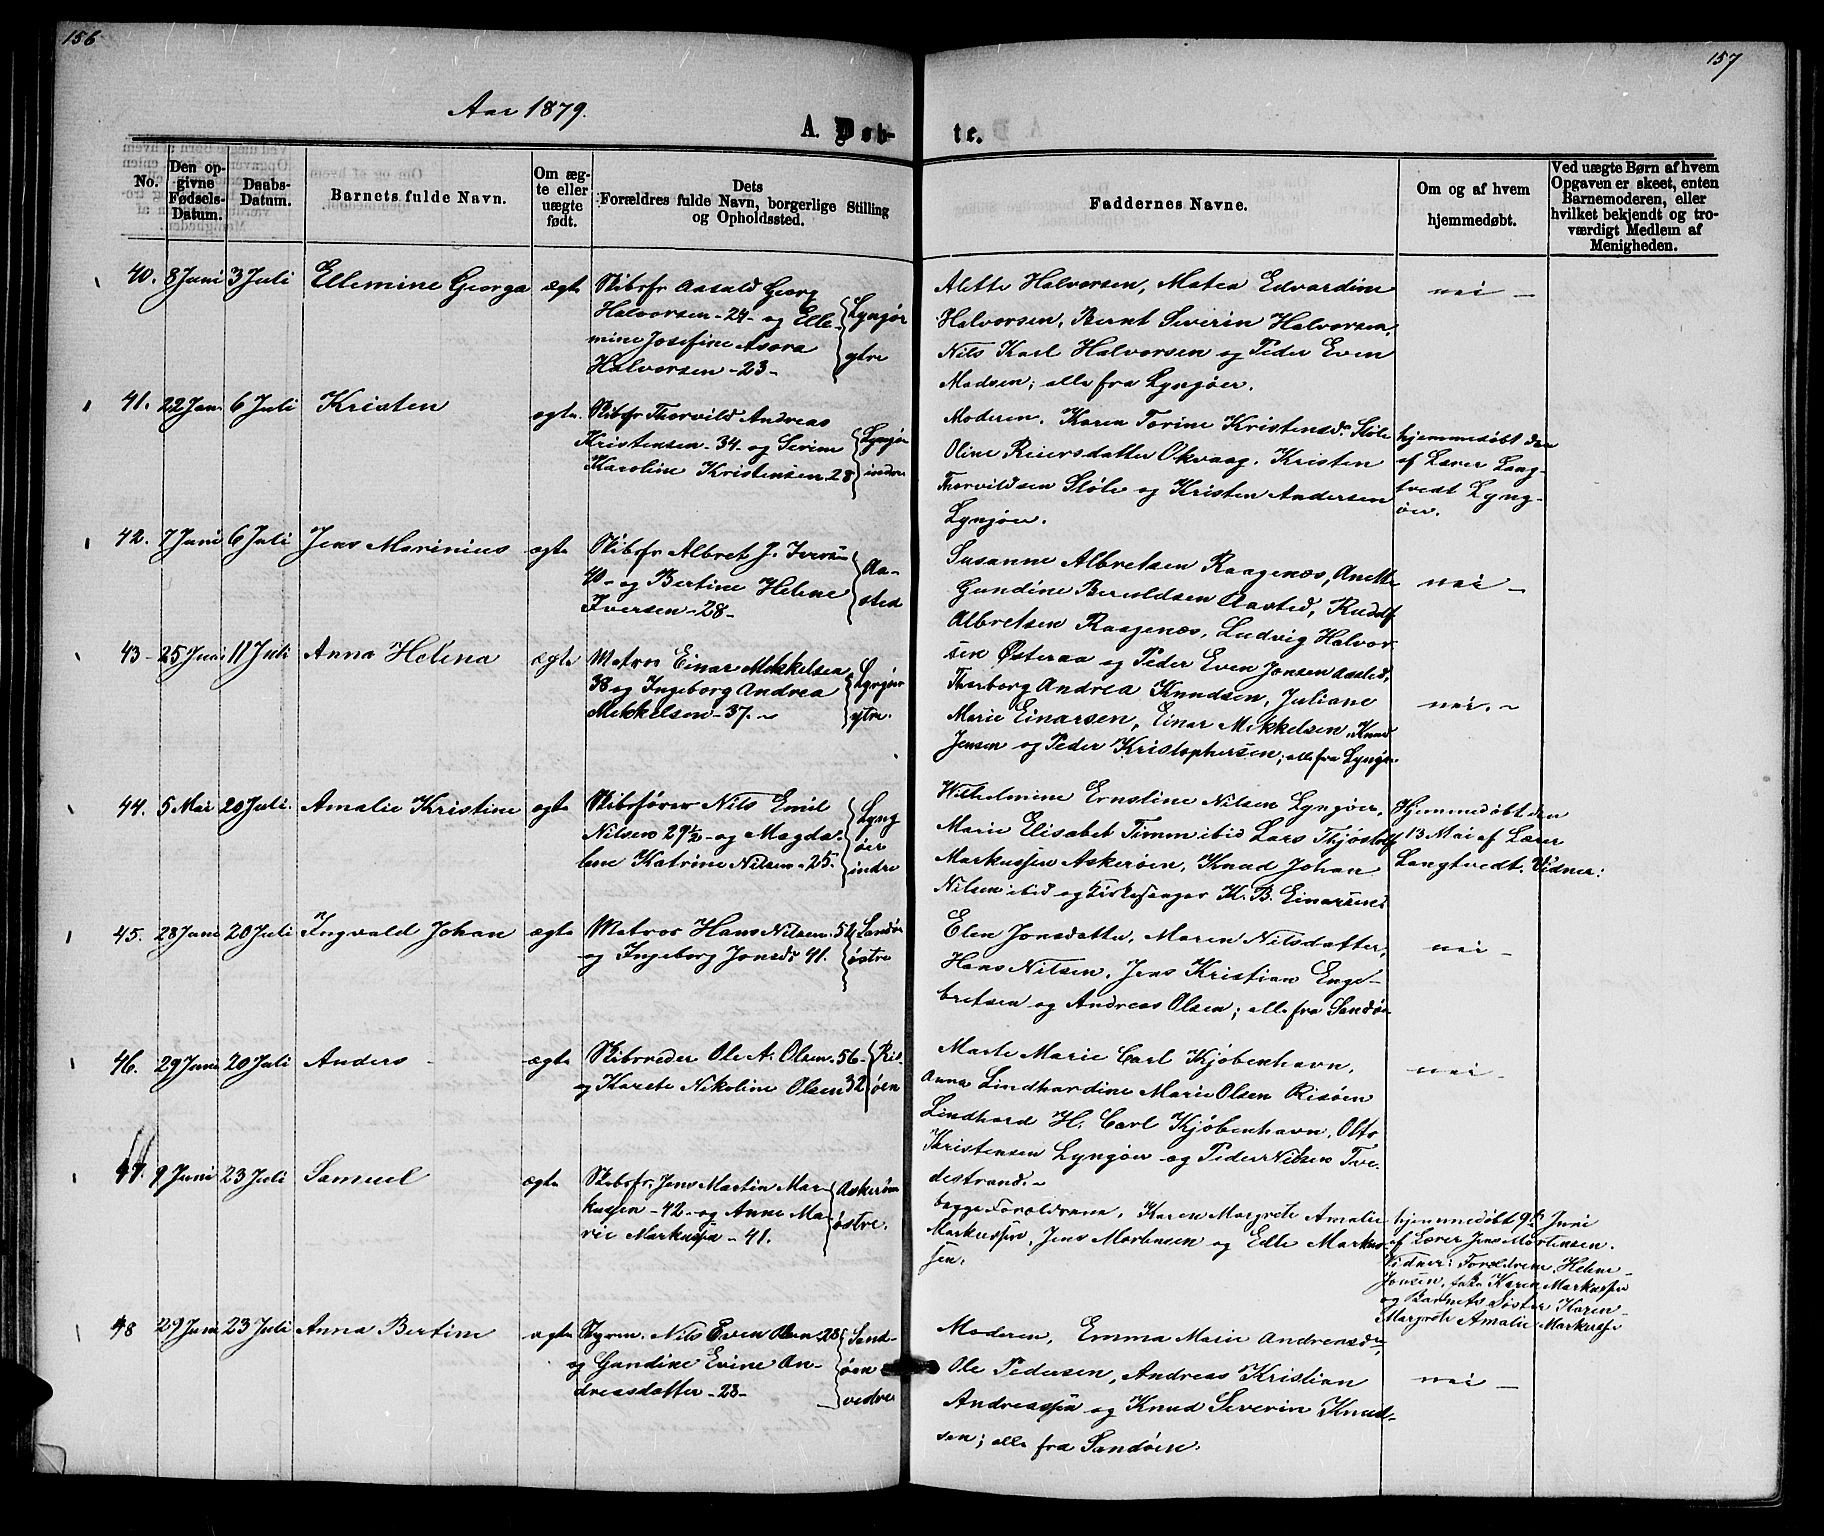 156
157
Aar 1879.
A. Døb-
te.
No.
Den op-
givne
Fødsels-
Datum.
Daabs-
Datum.
Barnets fulde Navn.
Om æg-
te eller
uægte
født.
Dets
Forældres fulde Navn, borgerlige Stilling
og Opholdssted.
Faddernes Navne.
Om og af hvem
hjemmedøbt.
Ved uægte Børn af hvem
Opgaven er skeet, enten
Barnemoderen, eller
hvilket bekjendt og tro-
værdigt Medlem af
Menigheden.
40. 8 Juni 3 Juli Ellemine Georga ægte
Skibsfr Aasald Georg
Halvorsen - 24 - og Elle-
mine Josefine Asora
Halvorsen - 23 -
Lyngør
ytre
Alette Halvorsen, Matea Edvardine
Halvorsen, Bernt Severin Halvorsen,
Nils Karl Halvorsen og Peder Even
Madsen; alle fra Lyngøer.
nei -
41. 22 Jan. 6 Juli Kristen ægte.
Skibsfr Thorvild Andreas
Kristensen - 34 - og Serine
Karoline Kristensen. 28
Lyngør
indre
Moderen. Karen Torine Kristensdr. Støle
Oline Reiersdatter Okvaag. Kristen
Thorvildsen Støle og Kristen Andersen
Lyngøer.
hjemmedøbt den
af Lærer Lang-
tvedt Lyng-
øer.
42. 7 Juni 6 Juli Jens Marinius ægte
Skibsfr Albret J. Iversen
40 - og Bertine Helene
Iversen - 28 -
Aa-
sted
Susanne Albretsen Raagenæs, Anette
Gundine Beruldsen Aasted, Rudolf
Albretsen Raagenæs, Ludvig Halvor-
sen Østeraa og Peder Even Jensen Aasted,
nei -
43 - 25 Juni 11 Juli Anna Helena ægte
Matros Einar Mikkelsen
38 og Ingeborg Andrea
Mikkelsen - 37. -
Lyngøer
ytre.
Thorborg Andrea Knudsen, Juliane
Marie Einarsen, Einar Mikkelsen, Knud
Jensen og Peder Kristophersen; alle fra Lyngør.
nei. -
44. 5 Mai 20 Juli. Amalie Kristine ægte
Skibsfører Nils Emil
Nilsen 29½ - og Magda-
lene Katrine Nilsen - 25.
Lyng
øer
indre
Wilhelmine Ernstine Nilsen Lyngøer,
Marie Elisabet Timm ibid Lars Thjøstolf
Markussen Askerøen, Knud Johan
Nilsen ibid og Kirkesanger K. B. Einarsen
Hjemmedøbt den
13 Mai af Lærer
Langtvedt. Vidner:
45. 28 Juni 20 Juli Ingvald Johan ægte
Matros Hans Nilsen. 52
og Ingeborg Jonsdr 41.
Sandøe
østre
Elen Jonsdatter, Maren Nilsdatter,
Hans Nilsen, Jens Kristian Enge-
bretsen og Andreas Olsen; alle fra Sandøe
nei -
46. 29 Juni 20 Juli Anders - ægte
Skibsreder Ole A. Olsen. 56 -
og Karete Nikoline Olsen 32
Ris-
øen
Marte Marie Carl Kjøbenhavn,
Anna Lindhardine Marie Olsen Risøen
Lindhard H. Carl Kjøbenhavn, Otto
Kristensen Lyngøer og Peder Nilsen Tve-
destrand. -
nei -
47. 9 Juni 23 Juli Samuel ægte
Skibsfr. Jens Martin Mar-
kussen - 42 - og Anne Ma-
rie Markussen - 41.
Askerøen
østre.
begge Forældrene, Karen Margrete Amalie
Markussen, Jens Mortensen og Edle Markus-
sen.
hjemmedøbt 9de Juni
af Lærer Jens Mortensen.
Vidner: Forældrene, Helene
Jonsen, Karen Markussen
og Barnets Søster Karen
Margrete Amalie Markussen
48 29 Juni 23 Juli Anna Bertine ægte
Styrm. Nils Even Olsen 28
og Gundine Evine An-
dreasdatter - 23 -
Sand-
øen
vestre
Moderen, Emma Marie Andreasdr,
Ole Pedersen, Andreas Kristian
Andreassen og Knud Severin Knud-
sen; alle fra Sandøen.
nei -